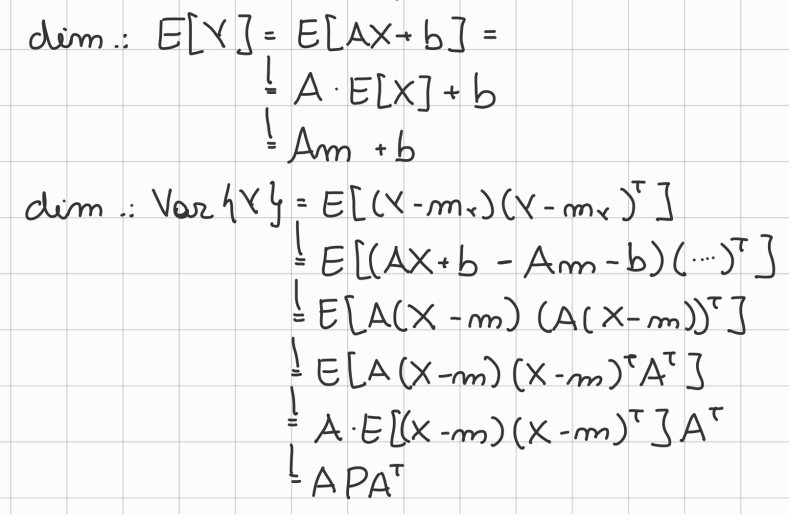 dim.: E[Y] = E[AX+b] =
= A · E[X] + b
= Am + b
dim.: Var{Y} = E[(Y-m_Y)(Y-m_Y)^T]
= E[(AX+b - Am - b)(....)^T]
= E[A(X-m) (A(X-m))^T]
= E[A(X-m)(X-m)^T A^T]
= A·E[(X-m)(X-m)^T]A^T
= APA^T